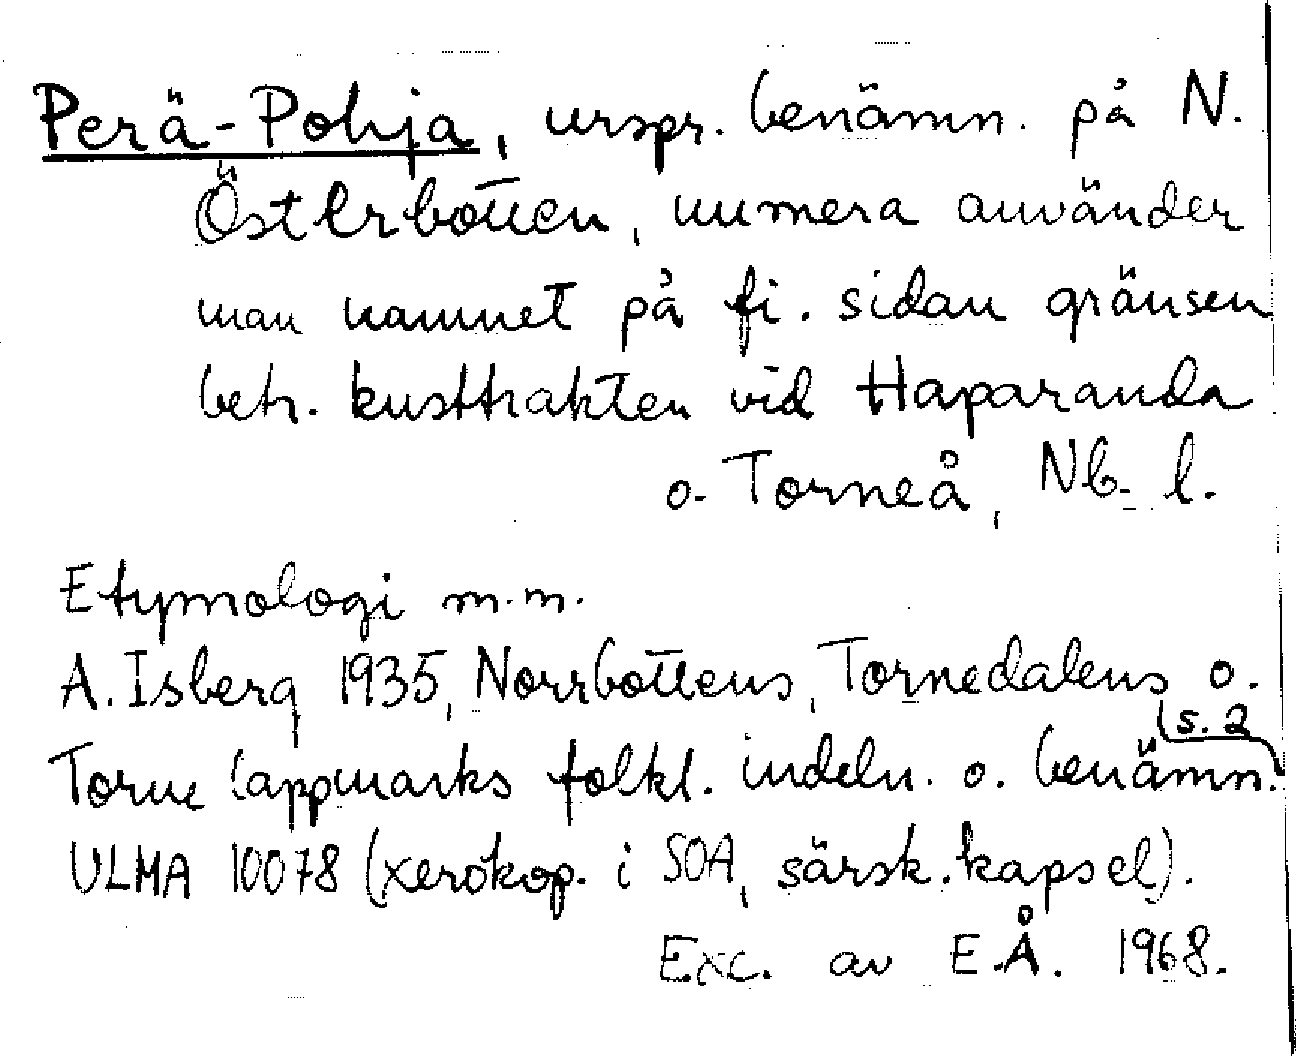 Perä-Pohja, urspr. benämn. på N.
Österbotten, numera använder
man namnet på fi. sidan gränsen
betr. kusttrakten vid Haparanda
o. Torneå, Nb. l.
Etymologi m.m.
A. Isberg 1935, Norrbottens, Tornedalens o.
Torne lappmarks folkl. indeln. o. benämn. s. 2
ULMA 10078 (xerokop. i SOA, särsk. kapsel).
Exc. av E.Å. 1968.